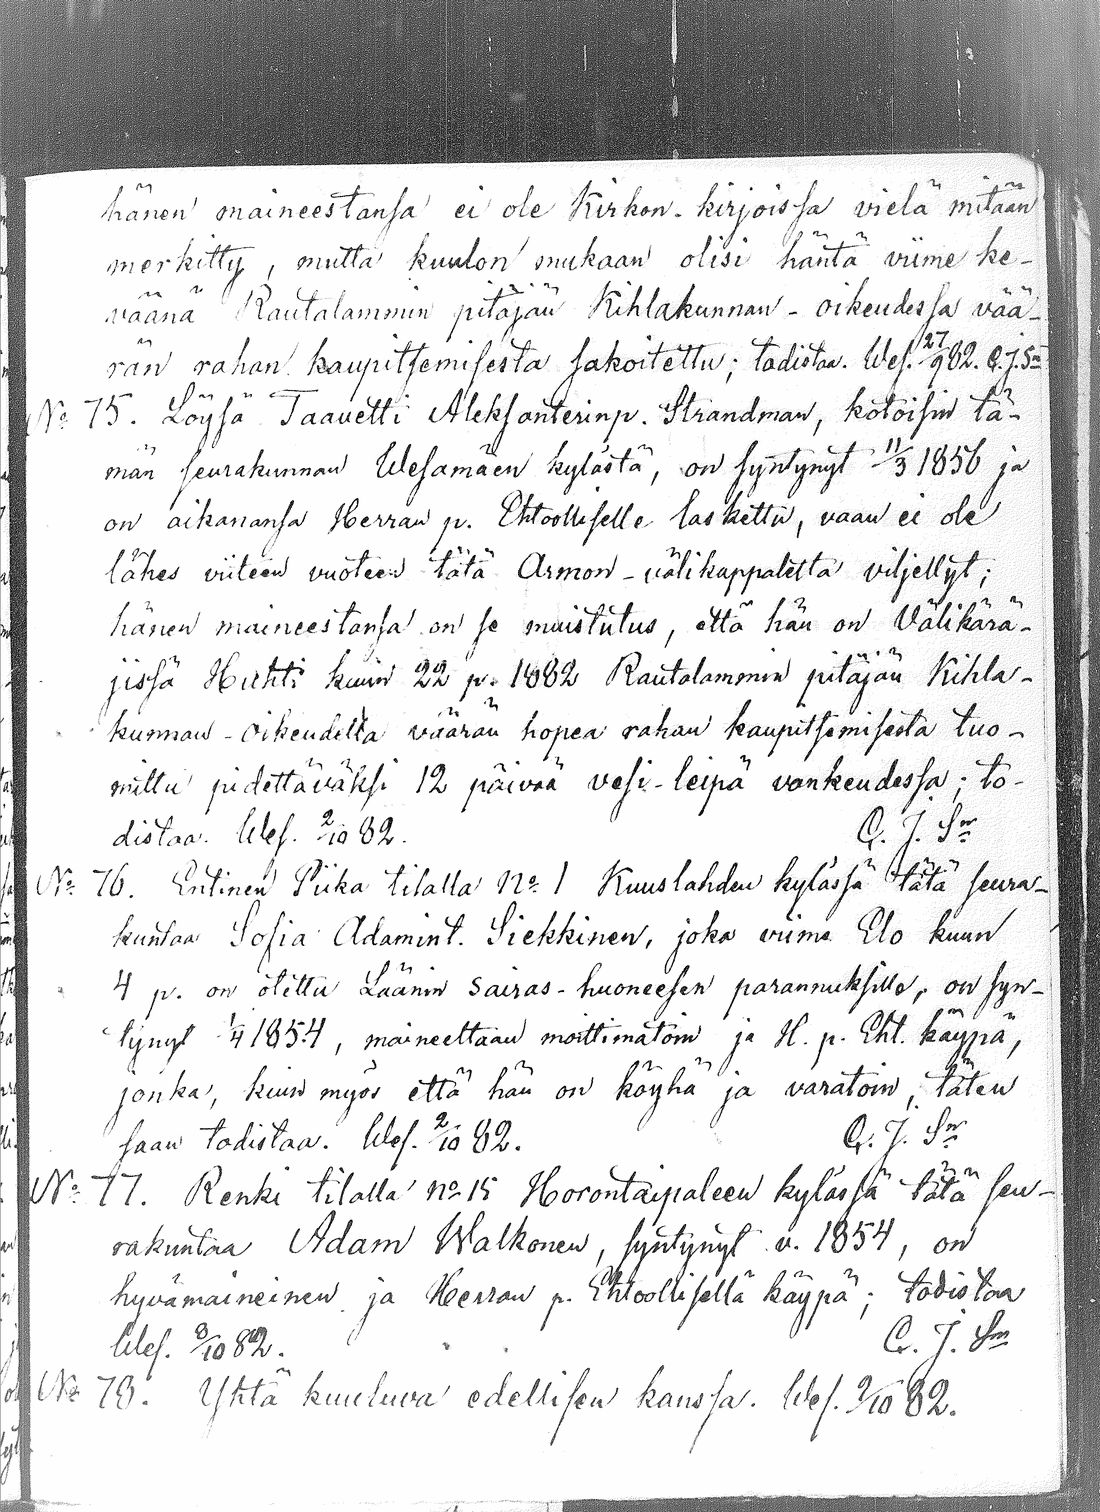 hänen maineestansa ei ole Kirkon-kirjoissa vielä mitään
merkitty, mutta kuulon mukaan olisi häntä viime ke-
väänä Rautalammin pitäjän Kihlakunnan-oikeudessa vää-
rän rahan kaupitsemisesta sakoitettu; todistaa. Wes. 27/9 82. C. J. Sm
No 75. Löysä Taavetti Aleksanterinp. Strandman, kotoisin tä-
män seurakunnan Wesamäen kylästä, on syntynyt 11/3 1856 ja
on aikanansa Herran p. Ehtoolliselle laskettu, vaan ei ole
lähes viiteen vuoteen tätä Armon-välikappaletta viljellyt;
hänen maineestansa on se muistutus, että hän on Välikärä-
jissä Huhti kuun 22 p. 1882 Rautalammin pitäjän Kihla-
kunnan-oikeudelta väärän hopea rahan kaupitsemisesta tuo-
mittu pidettäväksi 12 päivää vesi-leipä vankeudessa; to-
distaa. Wes. 2/10 82. C. J. Sm
No 76. Entinen Piika tilalla No 1 Kuuslahden kylässä tätä seura-
kuntaa Sofia Adamint. Siekkinen, joka viime Elo kuun
4 p. on otettu Läänin sairas-huoneesen parannuksille, on syn-
tynyt 1/4 1854, maineeltaan moittimatoin ja H. p. Eht. käypä,
jonka, kuin myös että hän on köyhä ja varatoin, täten
saan todistaa. Wes. 2/10 82. C. J. Sm
No 77. Renki tilalla No 15 Horontaipaleen kylässä tätä seu-
rakuntaa Adam Walkonen, syntynyt v. 1854, on
hyvämaineinen ja Herran p. Ehtoollisella käypä; todistaa
Wes. 3/10 82. C. J. Sm
No 78. Yhtä kuuluva edellisen kanssa. Wes. 9/10 82.